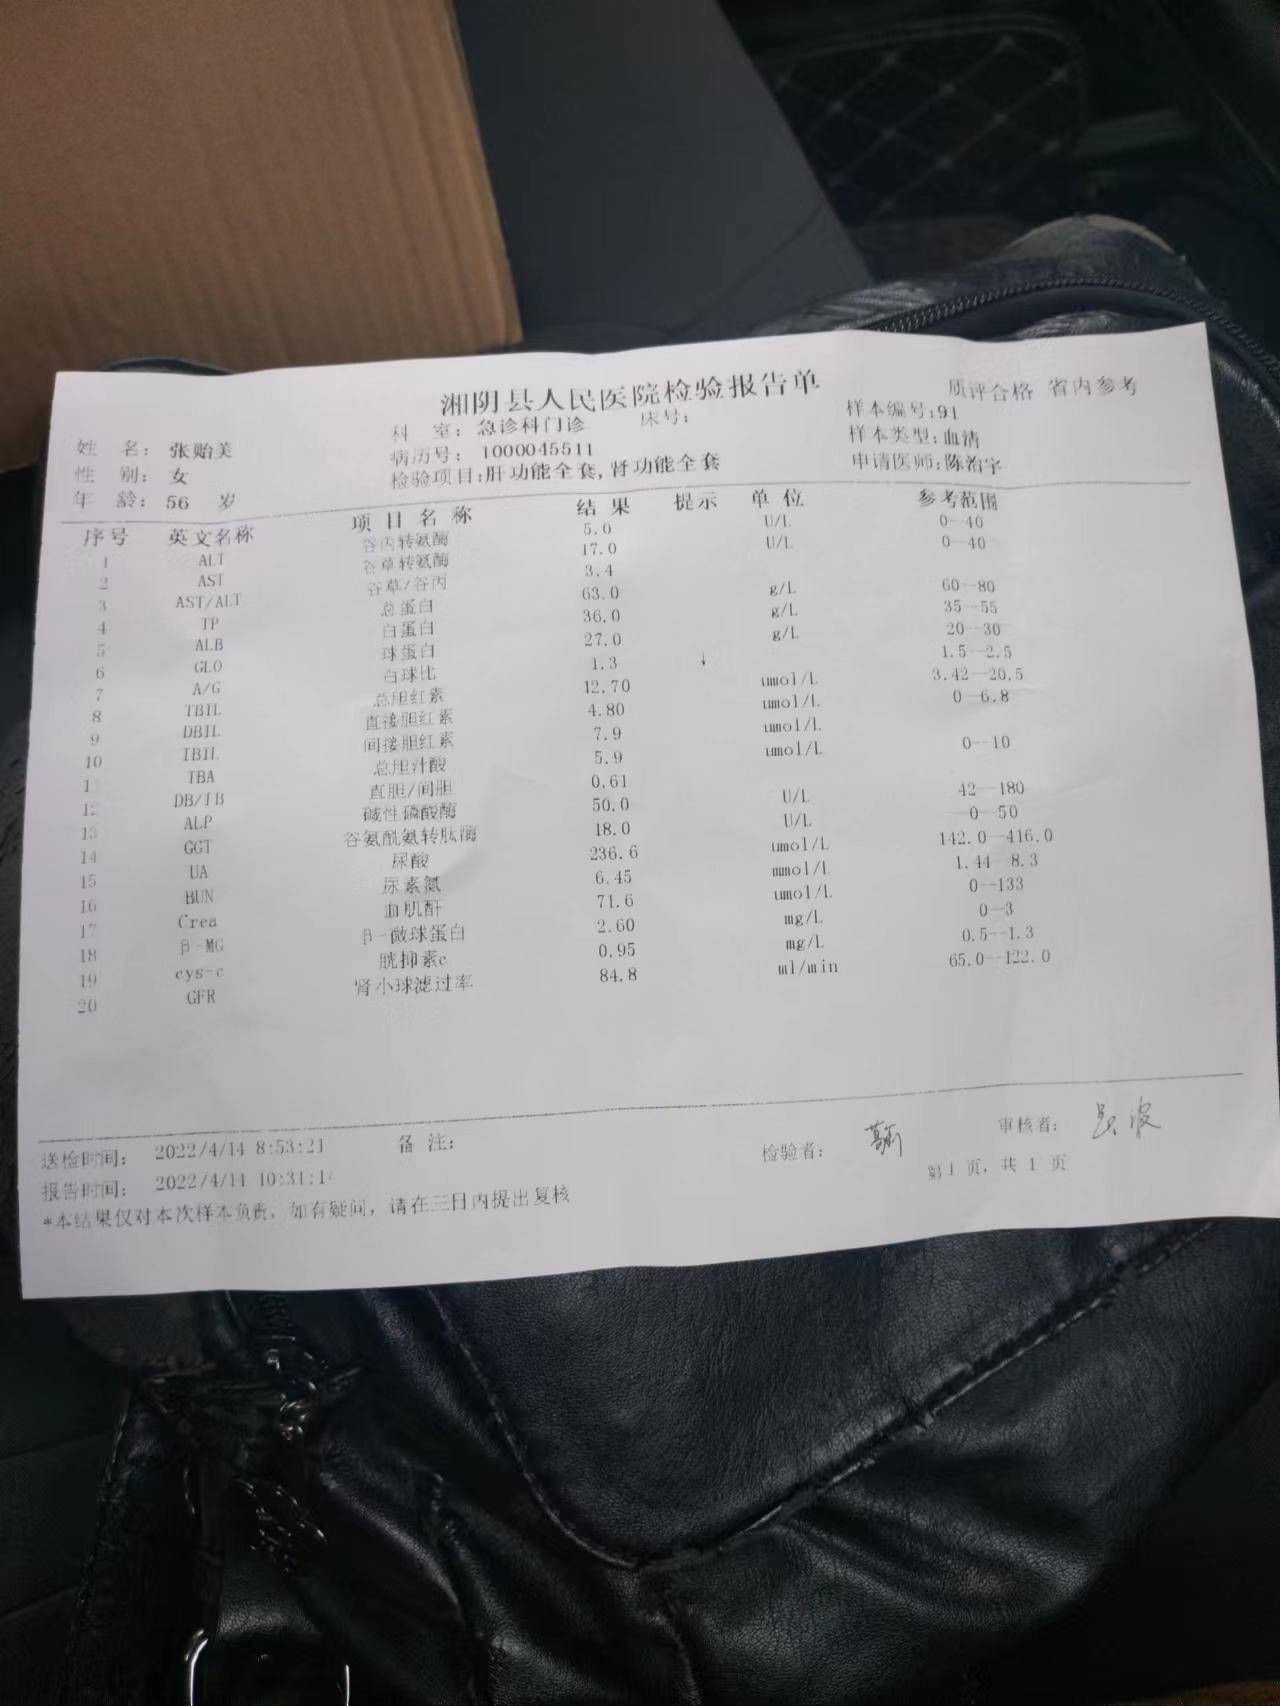 湘阴县人民医院检验报告单
质评合格 省内参考
姓 名：张贻美 科 室：急诊科门诊 床号： 样本编号:91
性 别：女 病历号：1000045511 样本类型:血清
年 龄：56 岁 检验项目:肝功能全套,肾功能全套 申请医师:陈治宇
序号 英文名称 项目名称 结果 提示 单位 参考范围
1 ALT 谷丙转氨酶 5.0 U/L 0--40
2 AST 谷草转氨酶 17.0 U/L 0--40
3 AST/ALT 谷草/谷丙 3.4
4 TP 总蛋白 63.0 g/L 60--80
5 ALB 白蛋白 36.0 g/L 35--55
6 GLO 球蛋白 27.0 g/L 20--30
7 A/G 白球比 1.3 ↓ 1.5--2.5
8 TBIL 总胆红素 12.70 umol/L 3.42--20.5
9 DBIL 直接胆红素 4.80 umol/L 0--6.8
10 IBIL 间接胆红素 7.9 umol/L
11 TBA 总胆汁酸 5.9 umol/L 0--10
12 DB/IB 直胆/间胆 0.61
13 ALP 碱性磷酸酶 50.0 U/L 42--180
14 GGT 谷氨酰氨转肽酶 18.0 U/L 0--50
15 UA 尿酸 236.6 umol/L 142.0--416.0
16 BUN 尿素氮 6.45 mmol/L 1.44--8.3
17 Crea 血肌酐 71.6 umol/L 0--133
18 β-MG β-微球蛋白 2.60 mg/L 0--3
19 cys-c 胱抑素c 0.95 mg/L 0.5--1.3
20 GFR 肾小球滤过率 84.8 ml/min 65.0--122.0
送检时间： 2022/4/14 8:53:21 备 注： 检验者： 审核者：
报告时间： 2022/4/14 10:31:14 第1 页，共 1 页
*本结果仅对本次样本负责，如有疑问，请在三日内提出复核